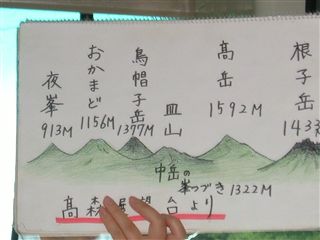 夜峯
913M
おかまど
1156M
烏帽子岳
1377M
皿山
高岳
1592M
根子岳
143
中岳の
峯つづき 1322M
高森展望台より